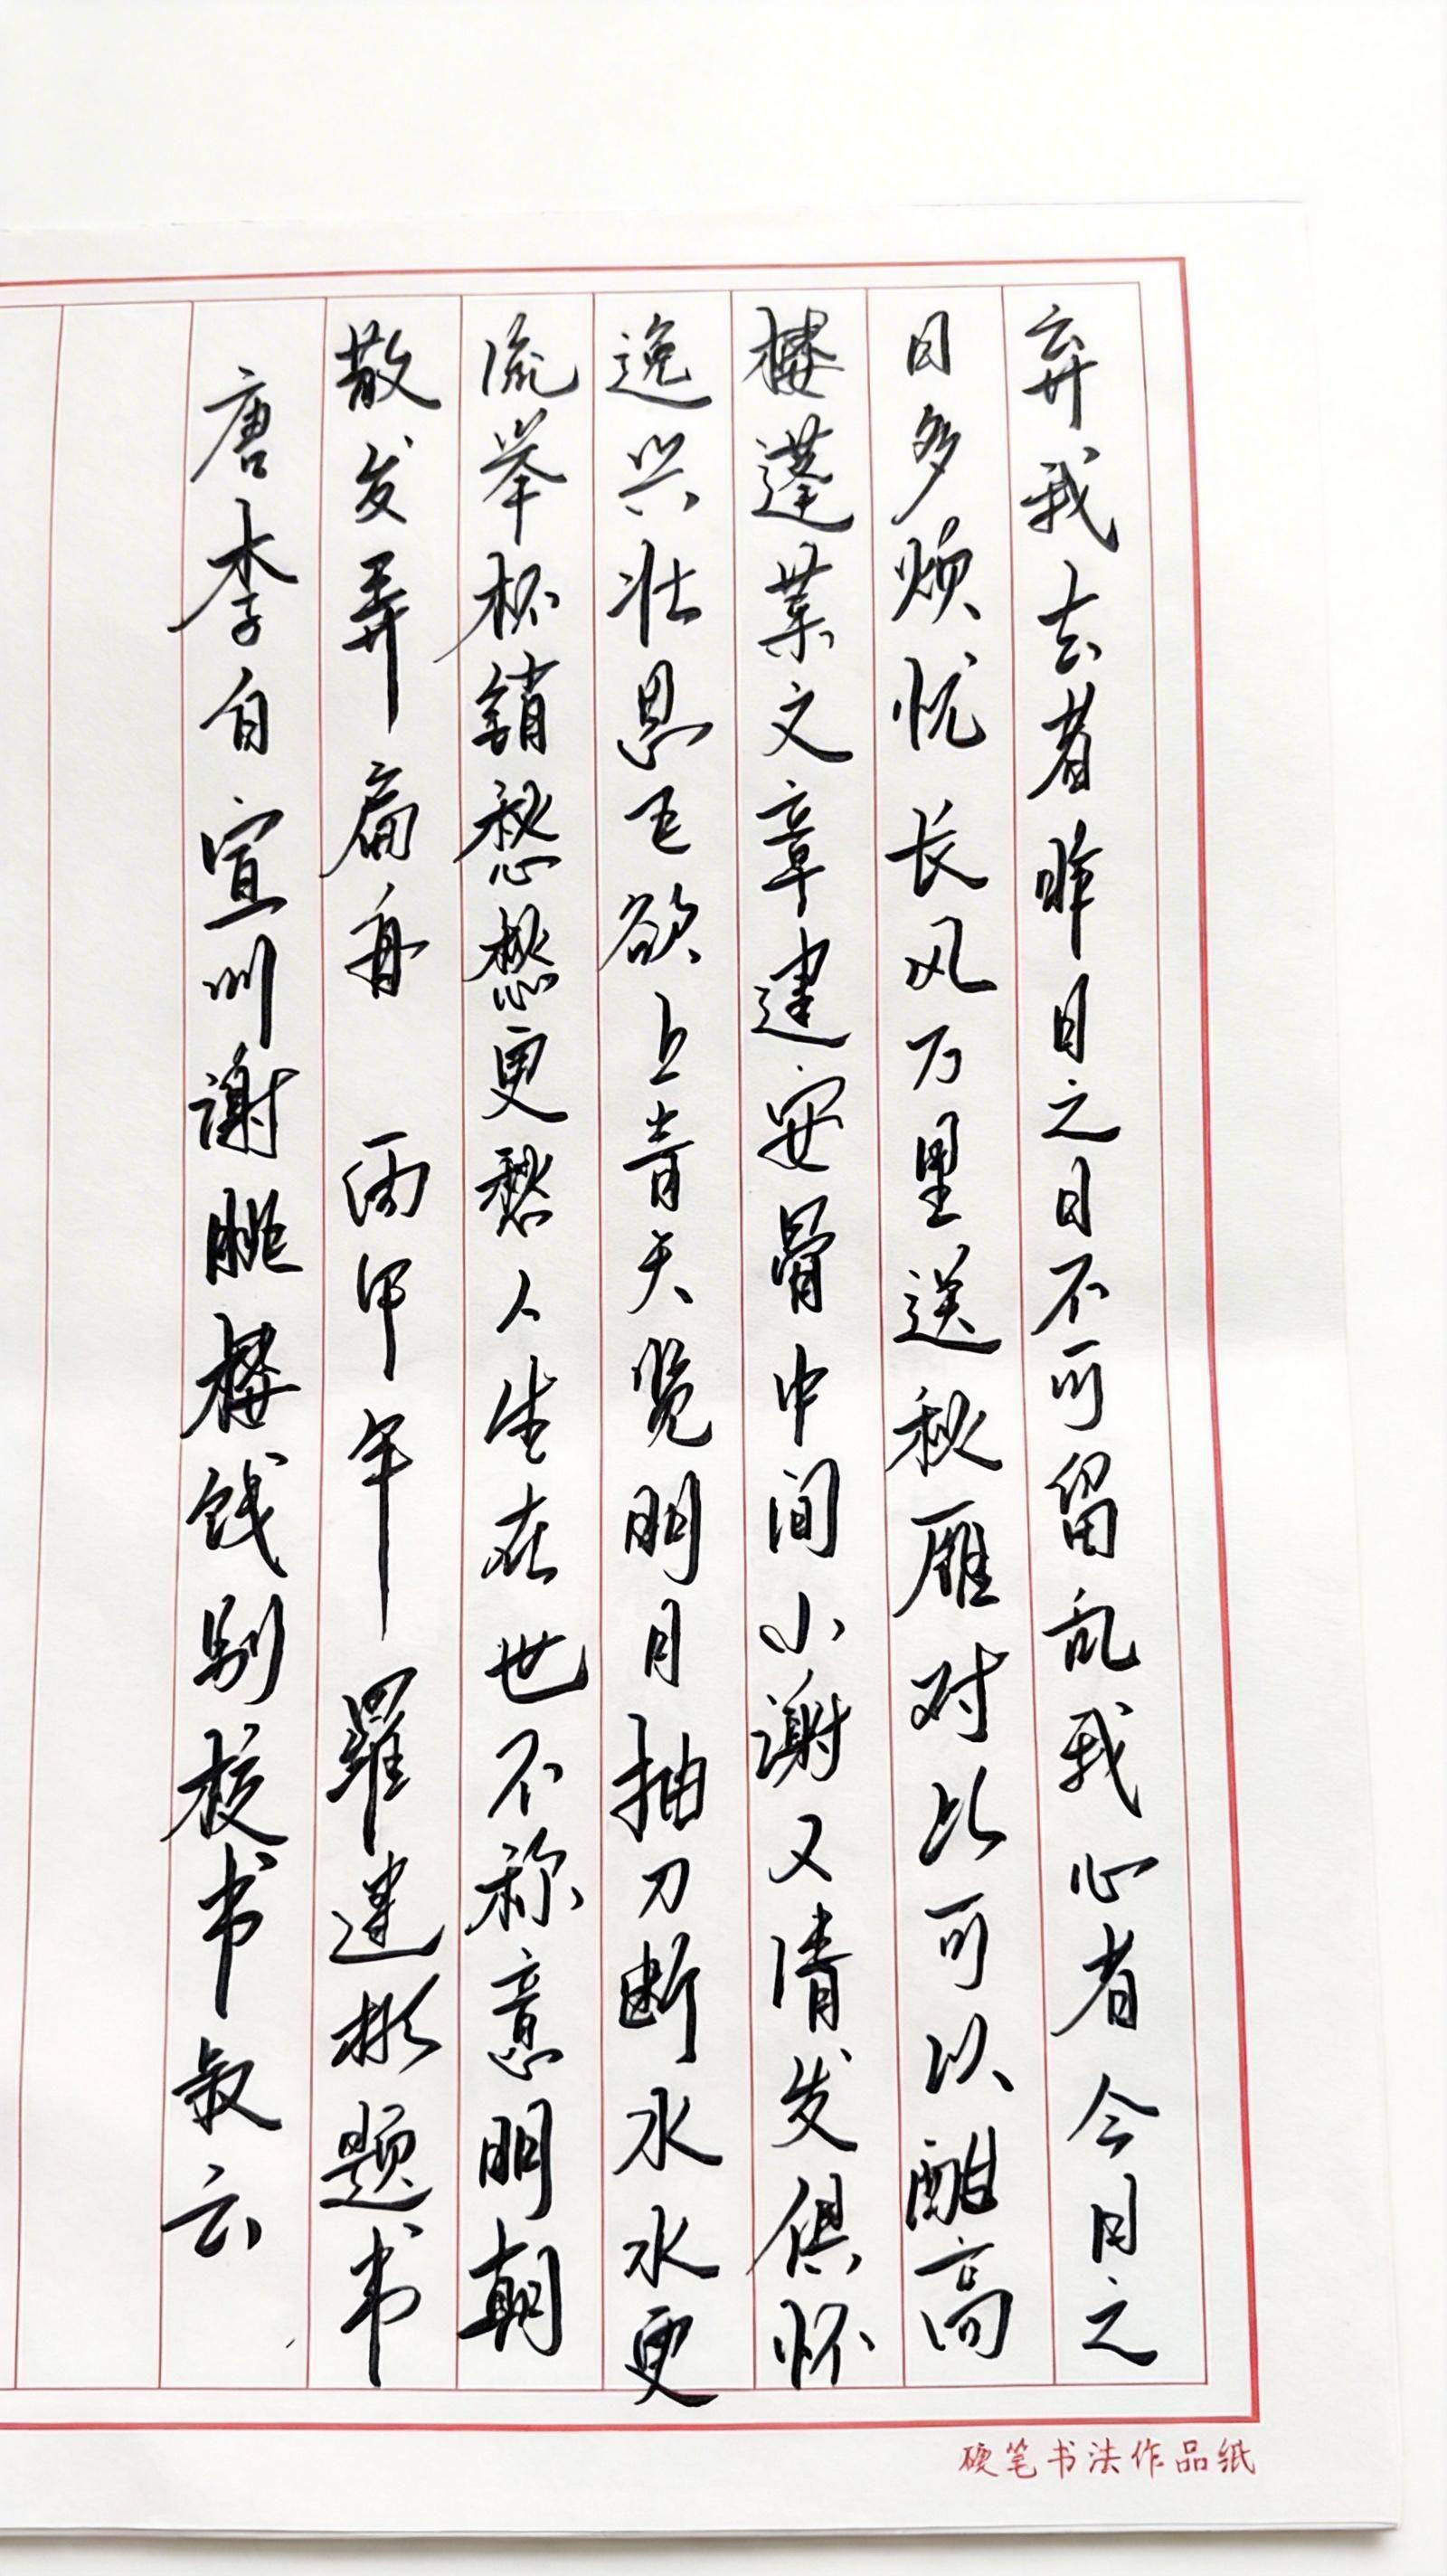 弃我去者昨日之日不可留乱我心者今日之
日多烦忧长风万里送秋雁对此可以酣高
楼蓬莱文章建安骨中间小谢又清发俱怀
逸兴壮思飞欲上青天览明月抽刀断水水更
流举杯销愁愁更愁人生在世不称意明朝
散发弄扁舟 丙申年 羅建彬题书
唐李白宣州谢朓楼饯别校书叔云
硬笔书法作品纸